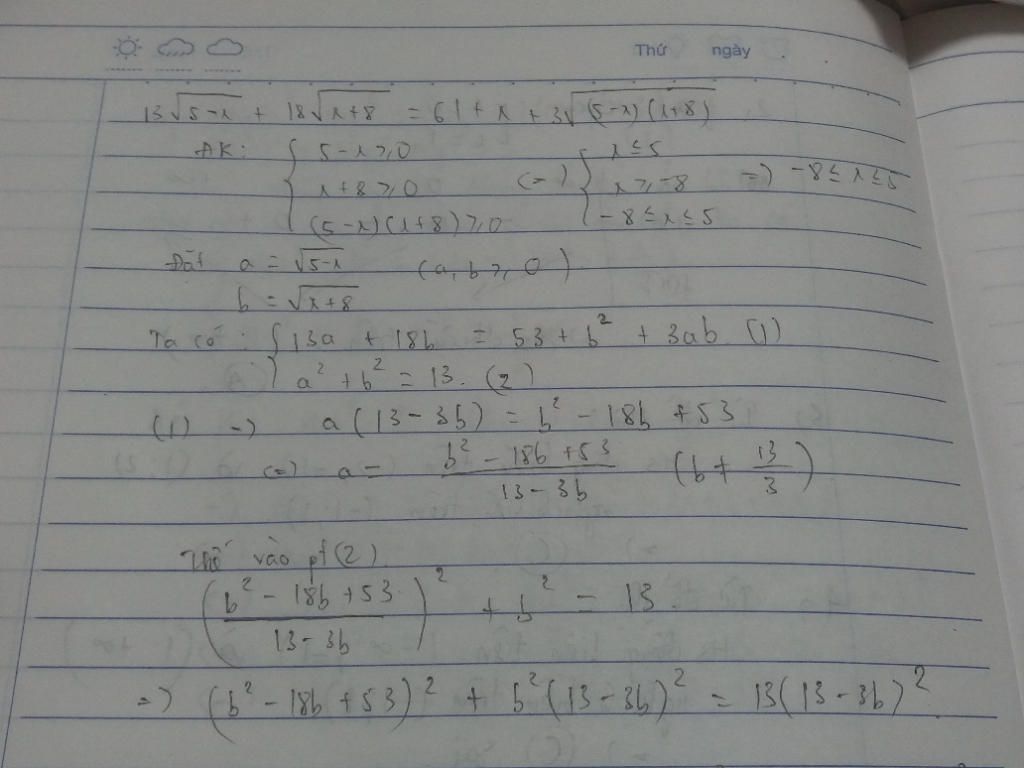 Thứ ngày
13√(5-x) + 18√(x+8) = 61 + x + 3√((5-x)(x+8))
ĐK: { 5-x ≥ 0 (=) { x ≤ 5 =) -8 ≤ x ≤ 5
x+8 ≥ 0 x ≥ -8
(5-x)(x+8) ≥ 0 -8 ≤ x ≤ 5
Đặt a = √(5-x) (a, b ≥ 0)
b = √(x+8)
Ta có: { 13a + 18b = 53 + b² + 3ab (1)
a² + b² = 13. (2)
(1) => a(13 - 3b) = b² - 18b + 53
(=) a = (b² - 18b + 53)/(13 - 3b) (b ≠ 13/3)
Thế vào pt (2)
((b² - 18b + 53)/(13 - 3b))² + b² = 13.
=) (b² - 18b + 53)² + b²(13 - 3b)² = 13(13 - 3b)²